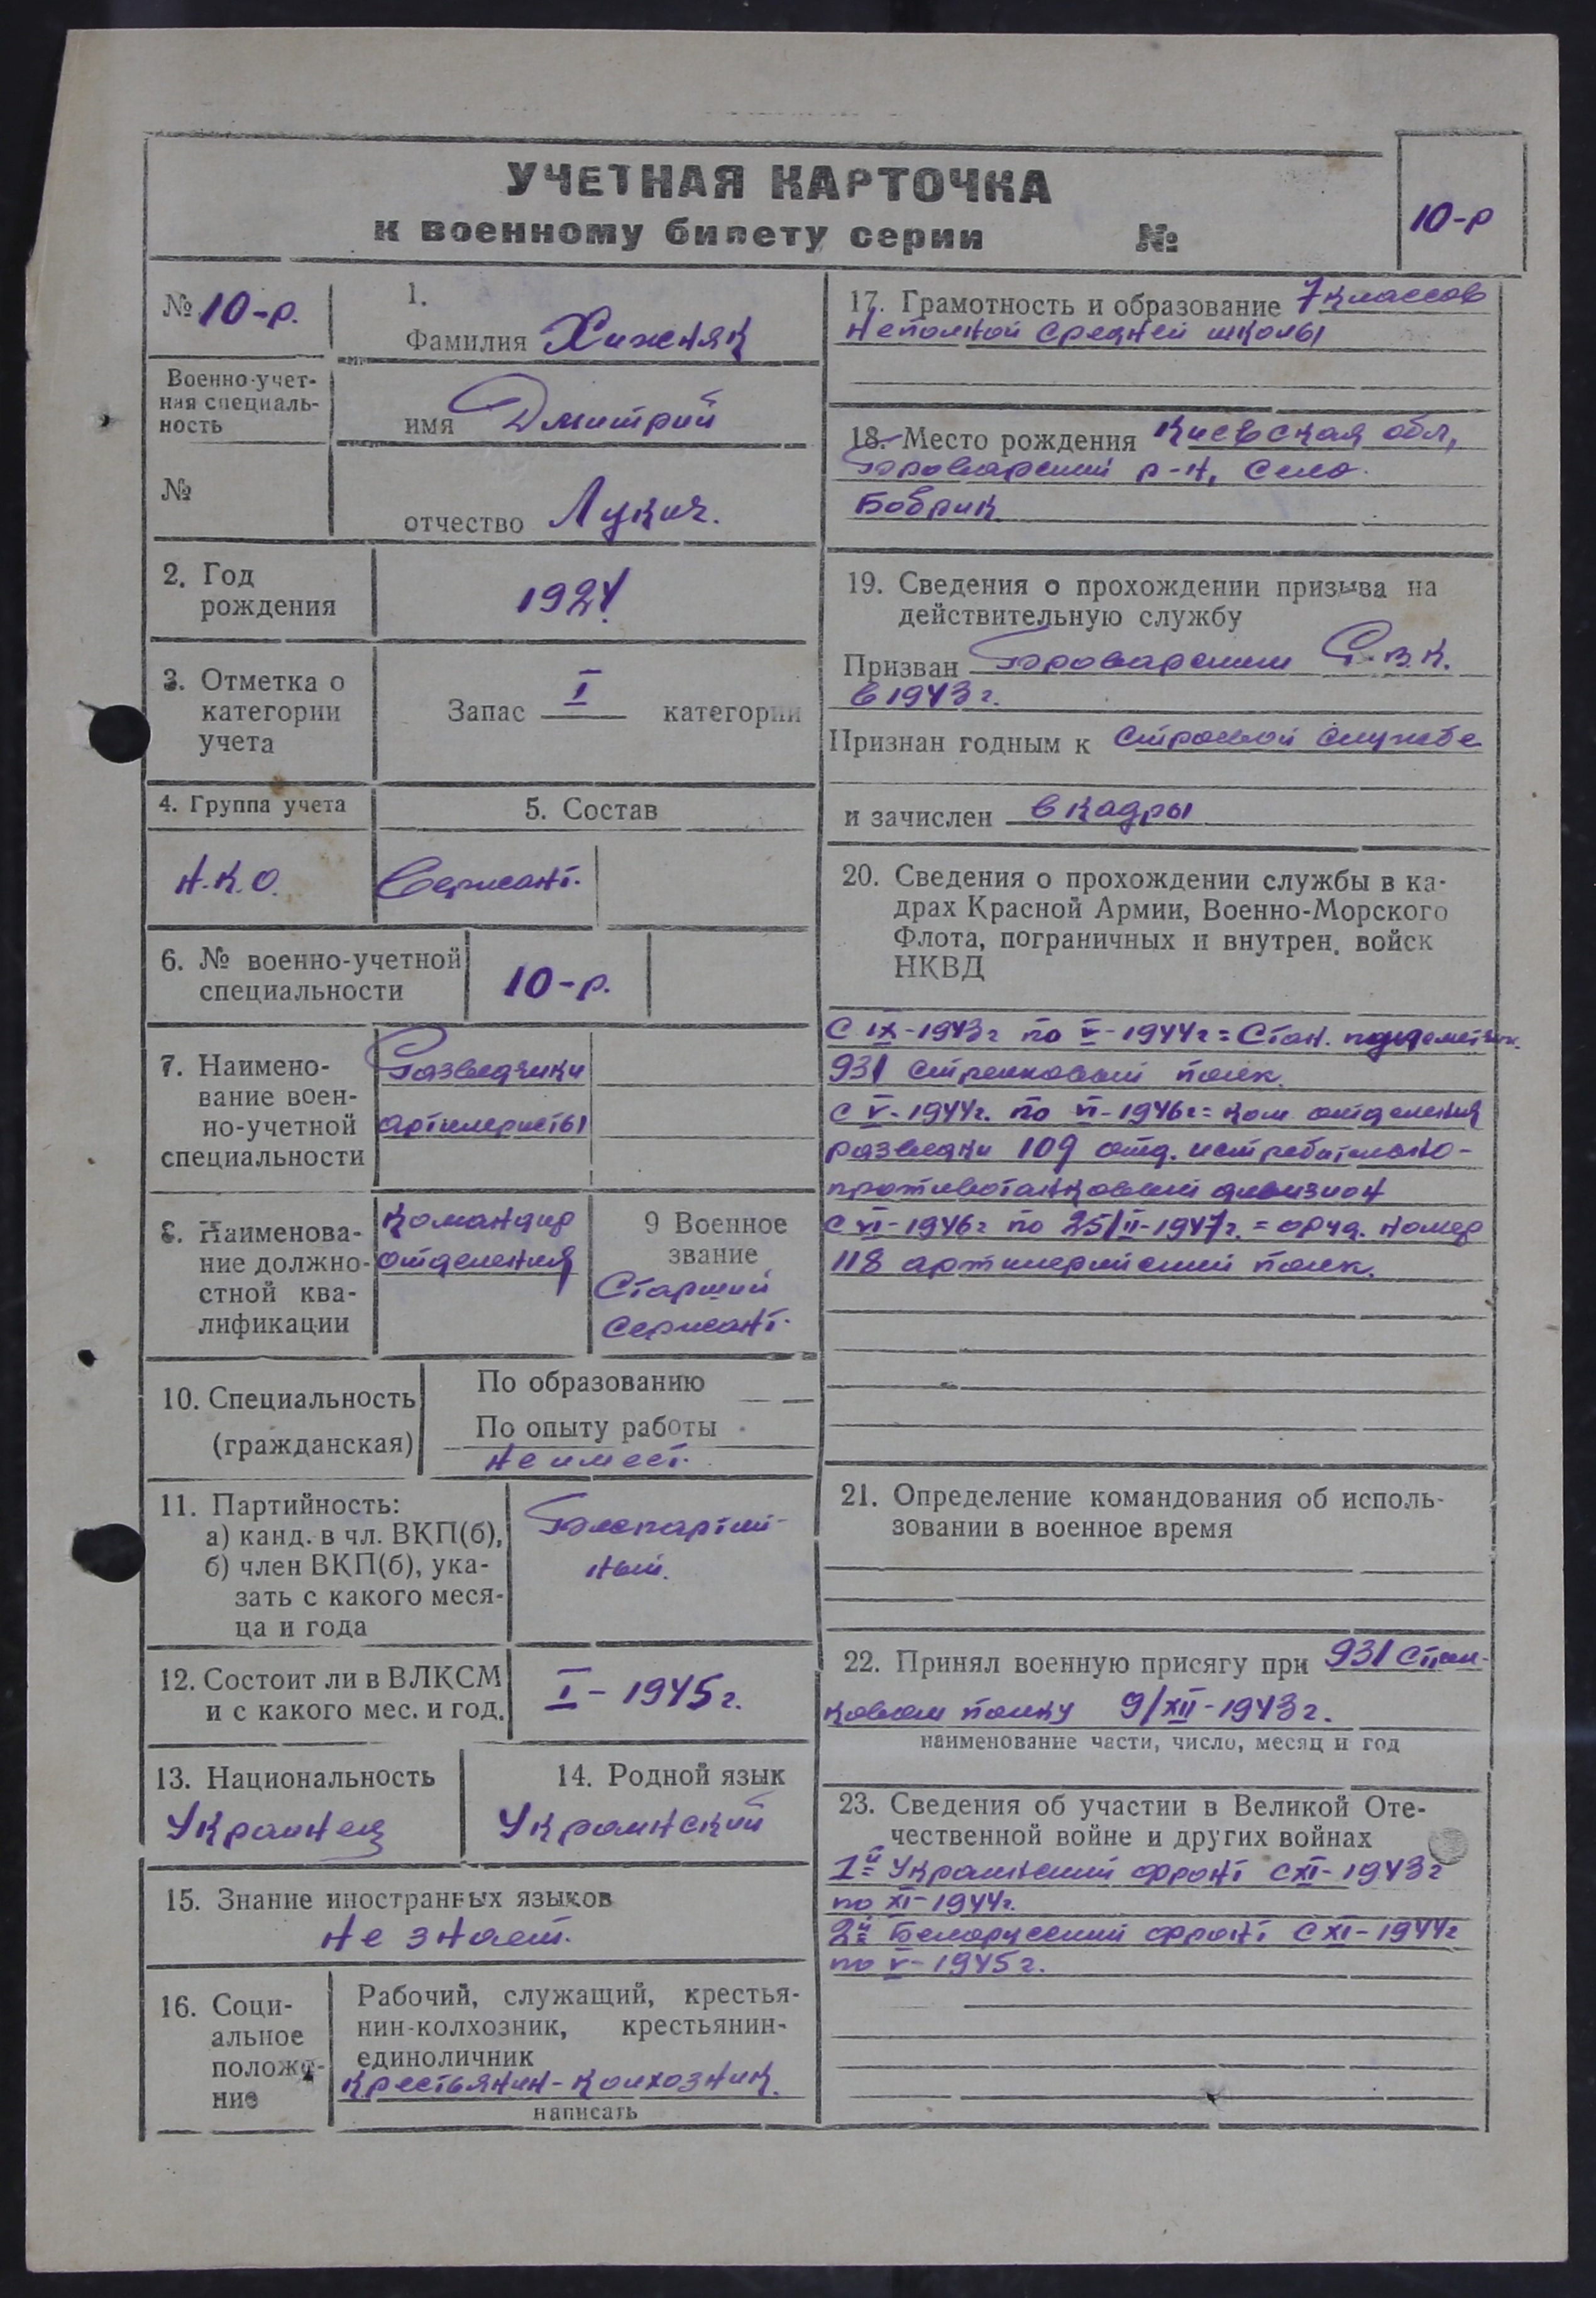 УЧЕТНАЯ КАРТОЧКА
к военному билету серии №
10-р
№ 10-р.
1.
Фамилия Хижняк
Военно-учет-
ная специаль-
ность
имя Дмитрий
№
отчество Лукич.
2. Год
рождения
1924.
3. Отметка о
категории
учета
Запас I категории
4. Группа учета
5. Состав
Н.К.О.
Сержант.
6. № военно-учетной
специальности
10-р.
7. Наимено-
вание воен-
но-учетной
специальности
Разведчики
артилеристы
8. Наименова-
ние должно-
стной ква-
лификации
Командир
отделения
9 Военное
звание
Старший
Сержант.
10. Специальность
(гражданская)
По образованию
По опыту работы
не имеет.
11. Партийность:
а) канд. в чл. ВКП(б),
б) член ВКП(б), ука-
зать с какого меся-
ца и года
Беспартий-
ный.
12. Состоит ли в ВЛКСМ
и с какого мес. и год.
I – 1945 г.
13. Национальность
Украинец
14. Родной язык
Украинский
15. Знание иностранных языков
не знает.
16. Соци-
альное
положе-
ние
Рабочий, служащий, крестья-
нин-колхозник, крестьянин-
единоличник
крестьянин-колхозник.
написать
17. Грамотность и образование 7 классов
неполной средней школы
18. Место рождения Киевская обл,
Броварский р-н, село.
Бобрик
19. Сведения о прохождении призыва на
действительную службу
Призван Броварским Р.В.К.
в 1943 г.
Признан годным к строевой службе
и зачислен в кадры
20. Сведения о прохождении службы в ка-
драх Красной Армии, Военно-Морского
Флота, пограничных и внутрен. войск
НКВД
С IX-1943г по V-1944г = Стан. пулеметчик.
931 стрелковый полк.
с V-1944г. по VI-1946г = ком отделения
разведки 109 отд. истребительно-
противотанковый дивизион
с VI-1946г по 25/II-1947г. = оруд. номер
118 артилерийский полк.
21. Определение командования об исполь-
зовании в военное время
22. Принял военную присягу при 931
ковом полку 9/XII-1943 г.
наименование части, число, месяц и год
23. Сведения об участии в Великой Оте-
чественной войне и других войнах
1й Украинский фронт с XI-1943 г
по XI-1944г.
2й Белорусский фронт с XI-1944г
по V-1945 г.